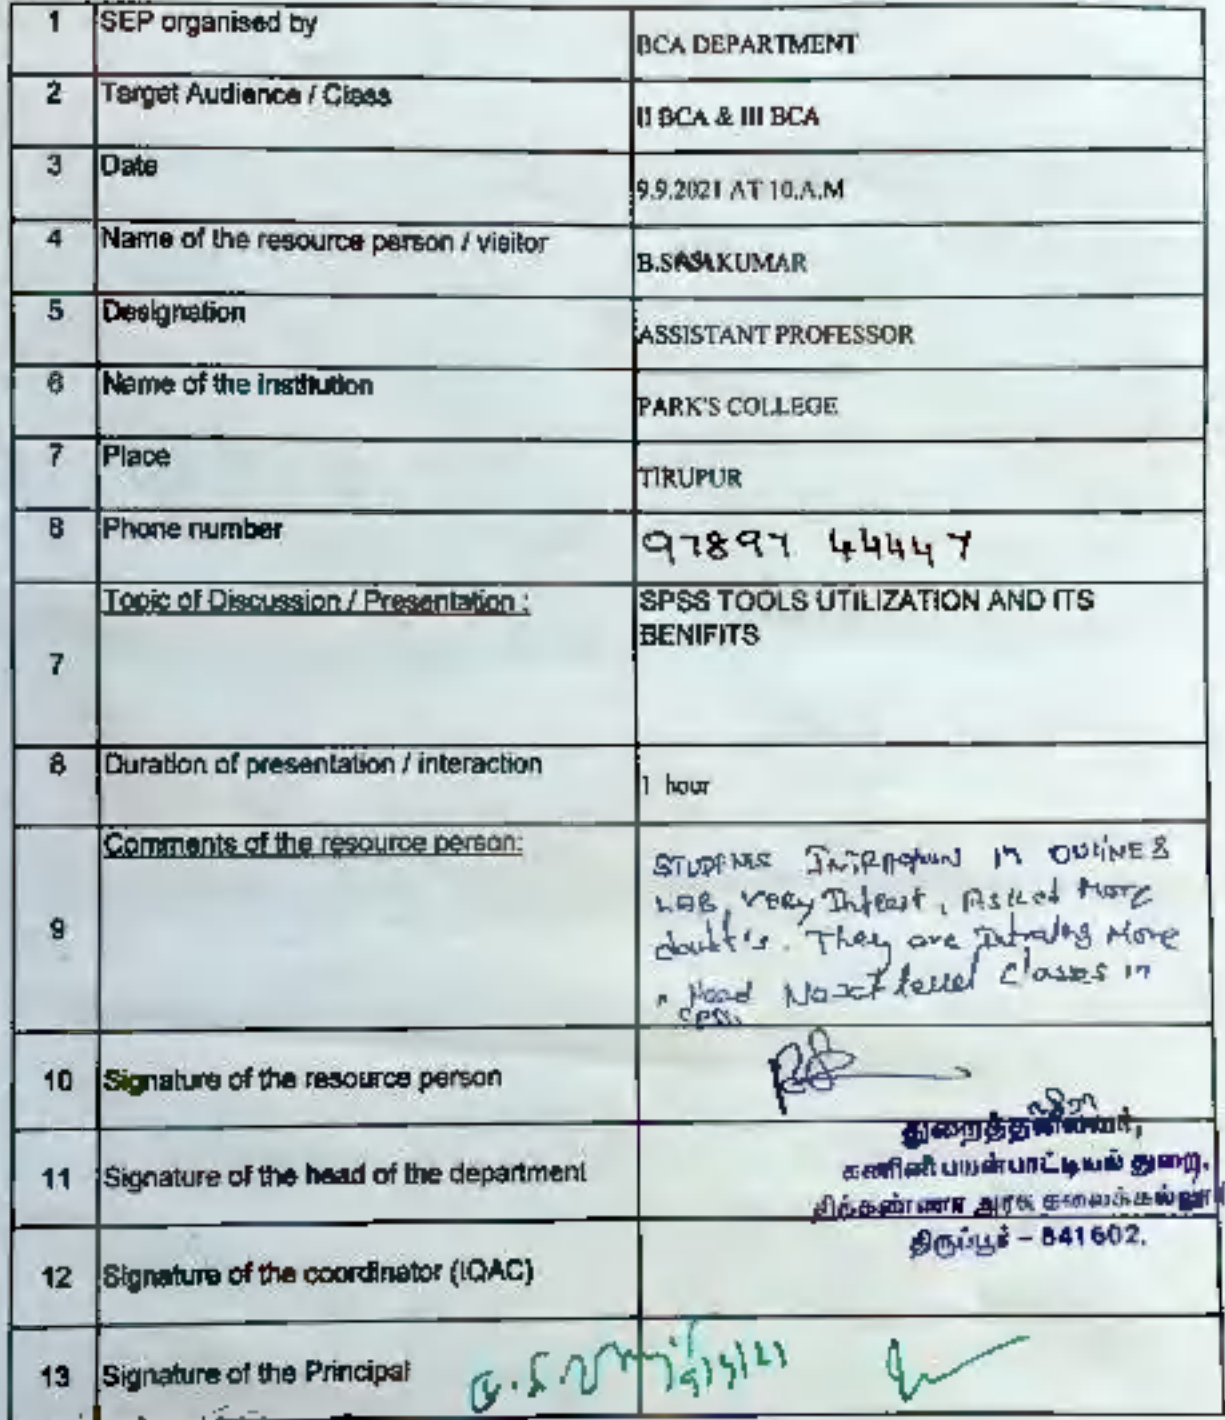 1 SEP organised by BCA DEPARTMENT
2 Target Audience / Class II BCA & III BCA
3 Date 9.9.2021 AT 10.A.M
4 Name of the resource person / visitor
5 Designation ASSISTANT PROFESSOR
6 Name of the institution PARK'S COLLEGE
7 Place TIRUPUR
8 Phone number 97897 44447
Topic of Discussion / Presentation : SPSS TOOLS UTILIZATION AND ITS
BENIFITS
7
8 Duration of presentation / interaction 1 hour
Comments of the resource person:
9
LAB, very Asked More
doubt's. They are More
Next level classes in
SPSS.
10 Signature of the resource person
துறைத்தலைவர்,
11 Signature of the head of the department கணினி பயன்பாட்டியல் துறை,
சிக்கண்ணா அரசு
திருப்பூர் – 641602.
12 Signature of the coordinator (IQAC)
13 Signature of the Principal